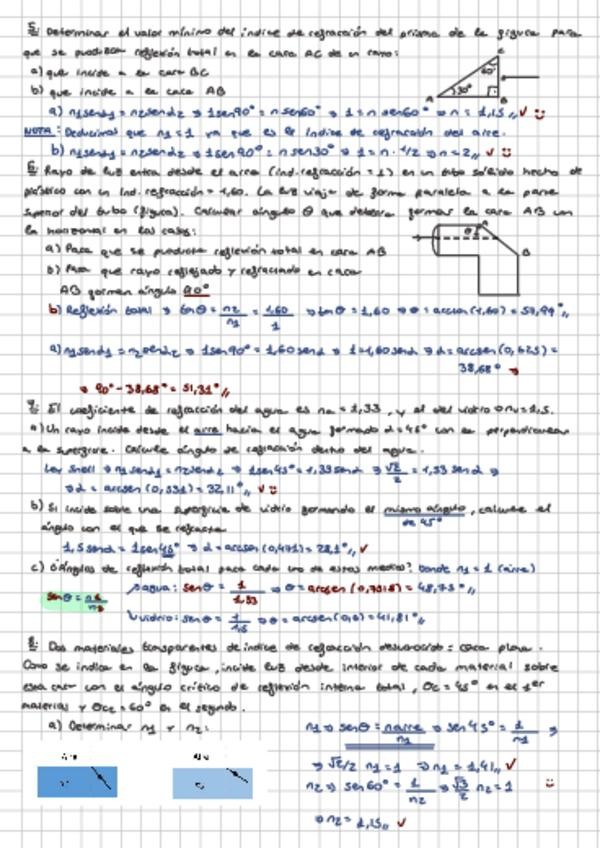 5. Determinar el valor mínimo del índice de refracción del prisma de la figura para
que se produzca reflexión total en la cara AC de un rayo:
a) que incide a la cara BC
b) que incide a la cara AB
C
60°
30°
A
B
a) n₁senα₁ = n₂senα₂ → 1sen90° = n sen60° → 1 = n sen60° → n = 1,15,, ✓ :)
NOTA: Deducimos que n₁ = 1 ya que es el índice de refracción del aire.
b) n₁senα₁ = n₂senα₂ → 1sen90° = n sen30° → 1 = n · 1/2 → n = 2,, ✓ :)
6. Rayo de luz entra desde el aire (ind. refracción = 1) en un tubo sólido hecho de
plástico con un ind. refracción = 1,60. La luz viaja de forma paralela a la parte
superior del tubo (figura). Calcular ángulo θ que debería formar la cara AB con
la horizontal en los casos:
θ
A
B
a) Para que se produzca reflexión total en cara AB
b) Para que rayo reflejado y refractado en cara
AB formen ángulo 90°
b) Reflexión total → tanθ = n₂/n₁ = 1,60/1 → tanθ = 1,60 → θ = arctan(1,60) = 57,99°,,
a) n₁senα₁ = n₂senα₂ → 1sen90° = 1,60senα → 1 = 1,60senα → α = arcsen(0,625) =
38,68° →
→ 90° - 38,68° = 51,31°,,
7. El coeficiente de refracción del agua es na = 1,33, y el del vidrio nv = 1,5.
a) Un rayo incide desde el aire hacia el agua formando α = 45° con la perpendicular
a la superficie. Calcule ángulo de refracción dentro del agua.
Ley Snell → n₁senα₁ = n₂senα₂ → 1sen45° = 1,33senα → √2/2 = 1,33senα →
→ α = arcsen(0,531) = 32,11°,, ✓ :)
b) Si incide sobre una superficie de vidrio formando el mismo ángulo, calcule el
de 45°
ángulo con el que se refracta
1,5senα = 1sen45° → α = arcsen(0,471) = 28,1°,, ✓
c) ¿Ángulos de reflexión total para cada uno de estos medios? Donde n₁ = 1 (aire)
senθ = n₂/n₁
→ agua: senθ = 1/1,33 → θ = arcsen(0,7518) = 48,75°,,
vidrio: senθ = 1/1,5 → θ = arcsen(0,6) = 41,81°,,
8. Dos materiales transparentes de índice de refracción desconocido = cara plana.
Como se indica en la figura, incide luz desde interior de cada material sobre
esta cara con el ángulo crítico de reflexión interna total, θc = 45° en el 1er
material y θc₂ = 60° en el segundo.
a) Determinar n₁ y n₂:
n₁ → senθ = naire/n₁ → sen45° = 1/n₁ →
→ √2/2 n₁ = 1 → n₁ = 1,41,, ✓
n₂ → sen60° = 1/n₂ → √3/2 n₂ = 1 :)
→ n₂ = 1,15,, ✓